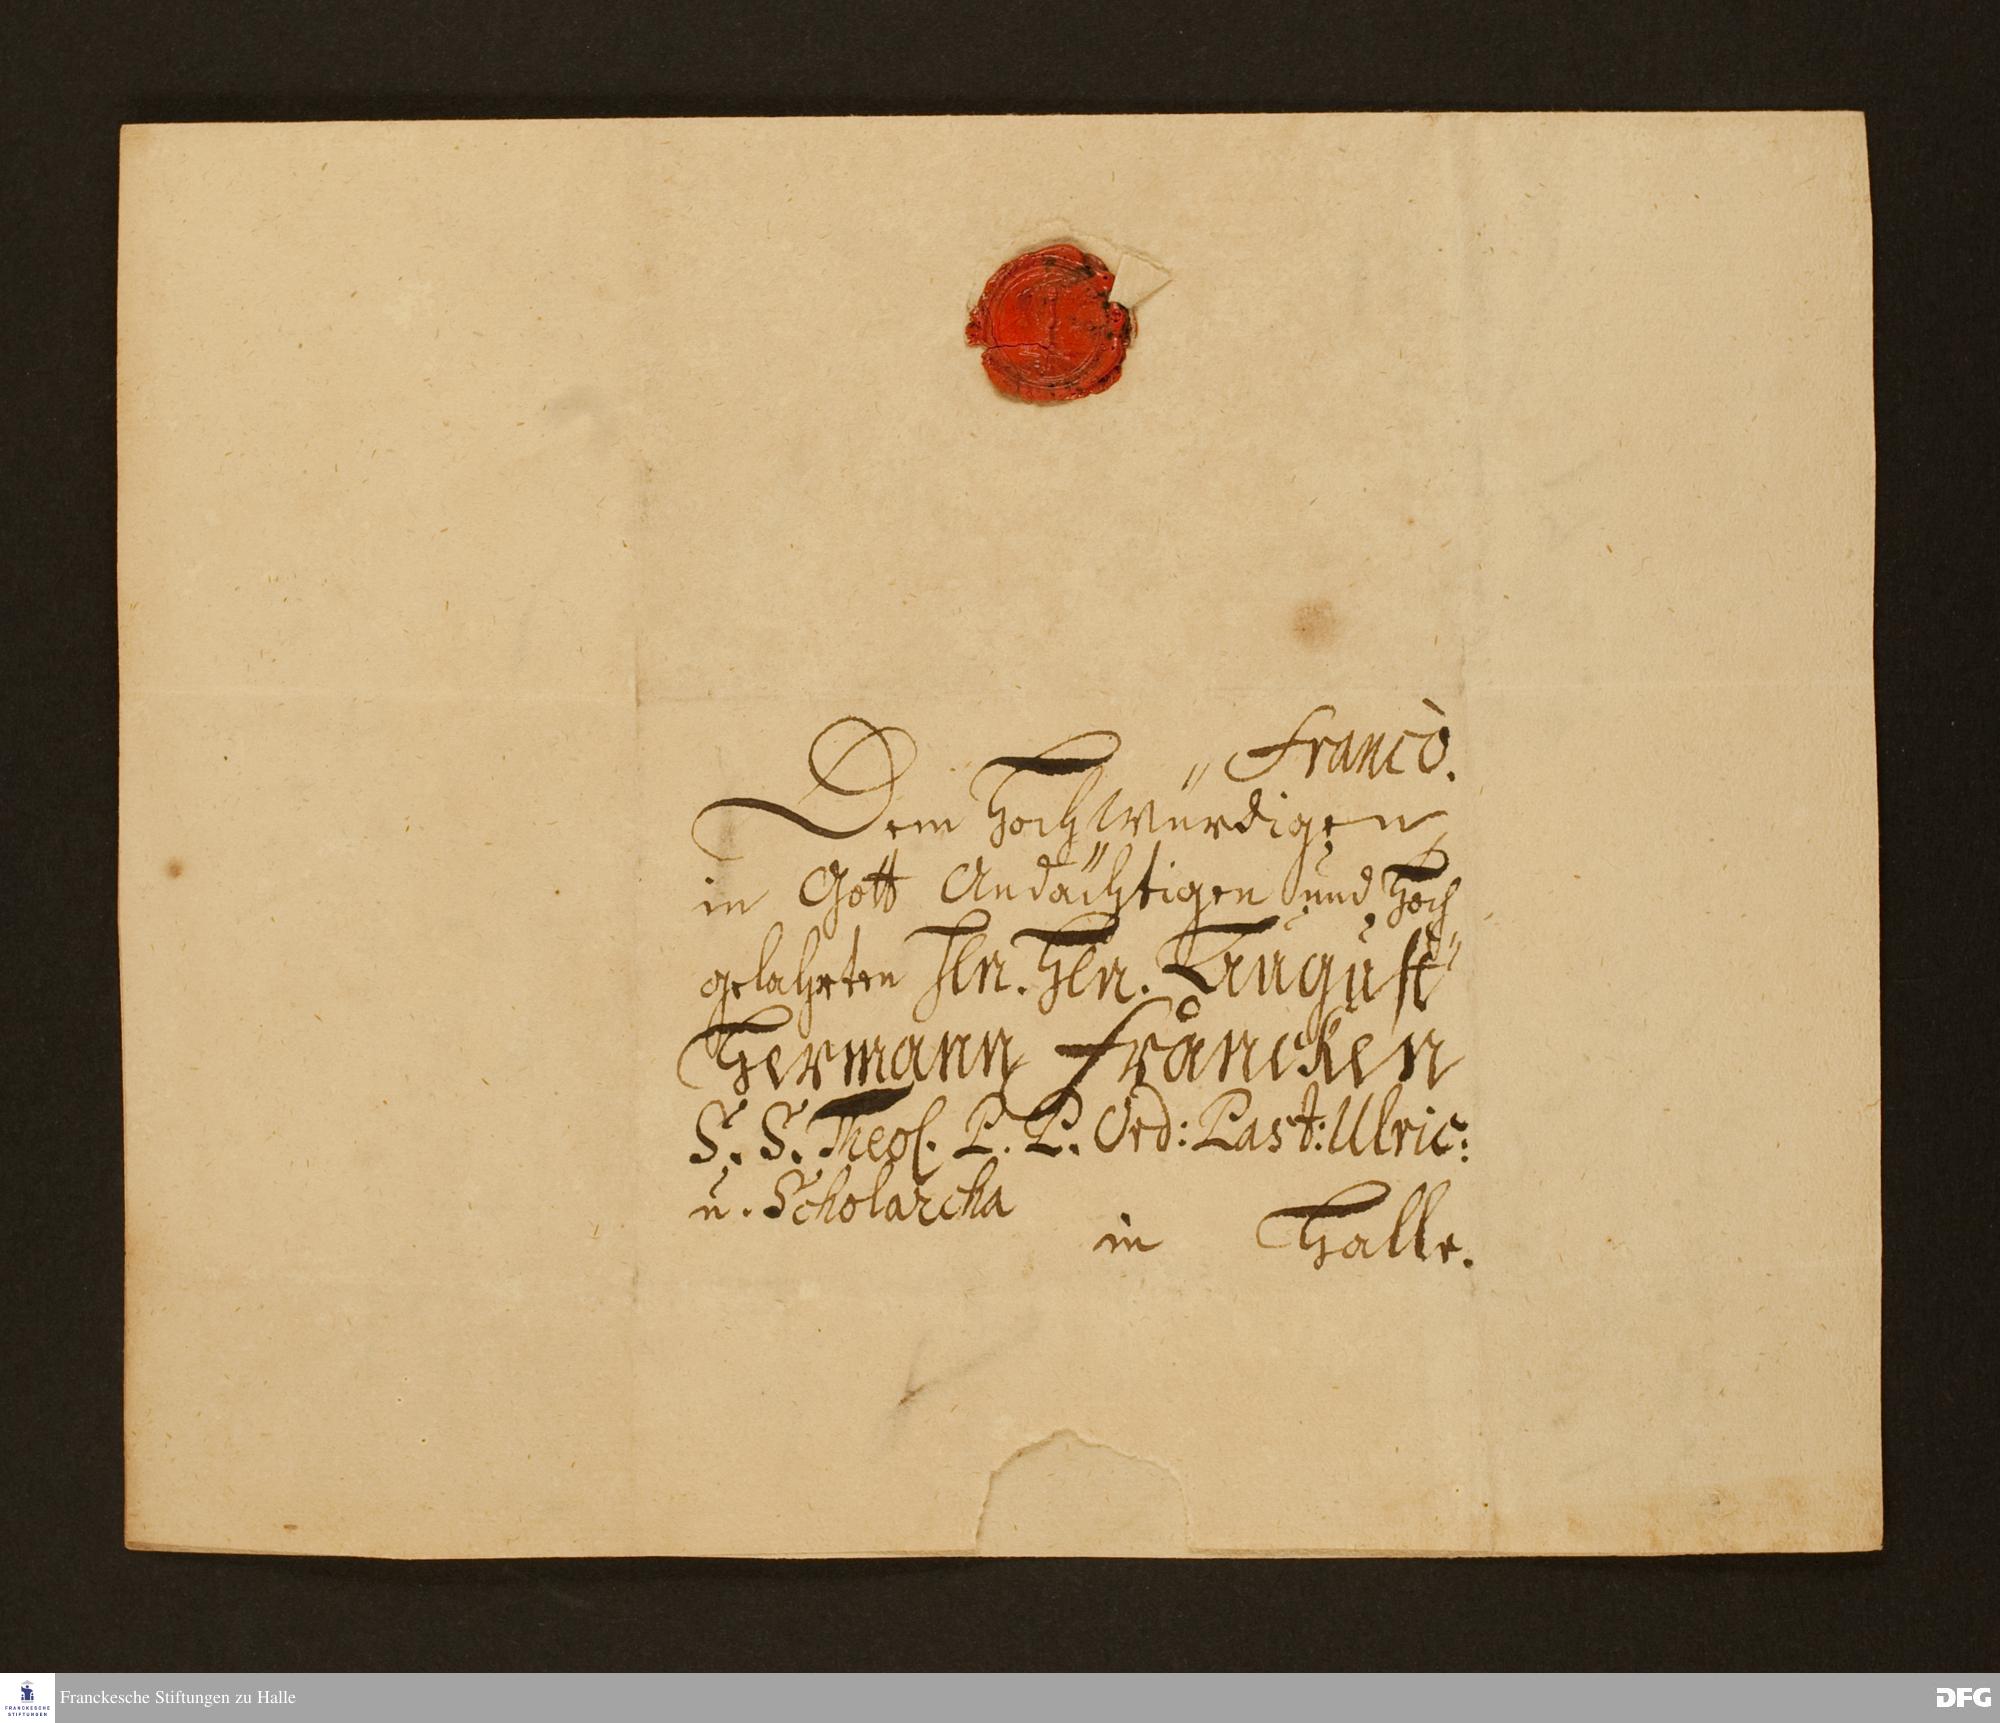 Francò.
Dem Hochwürdigen
in Gott Andächtigen und Hoch
gelahrten Hln. Hln. August
Hermann Francken
S. S. Theol. P. P. Ord: Past: Ulric:
u. Scholarcha
in Halle.
FRANCKESCHE
STIFTUNGEN
Franckesche Stiftungen zu Halle
DFG